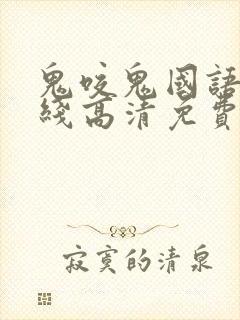 鬼咬鬼國語
綫高清免費
寂寞的清泉